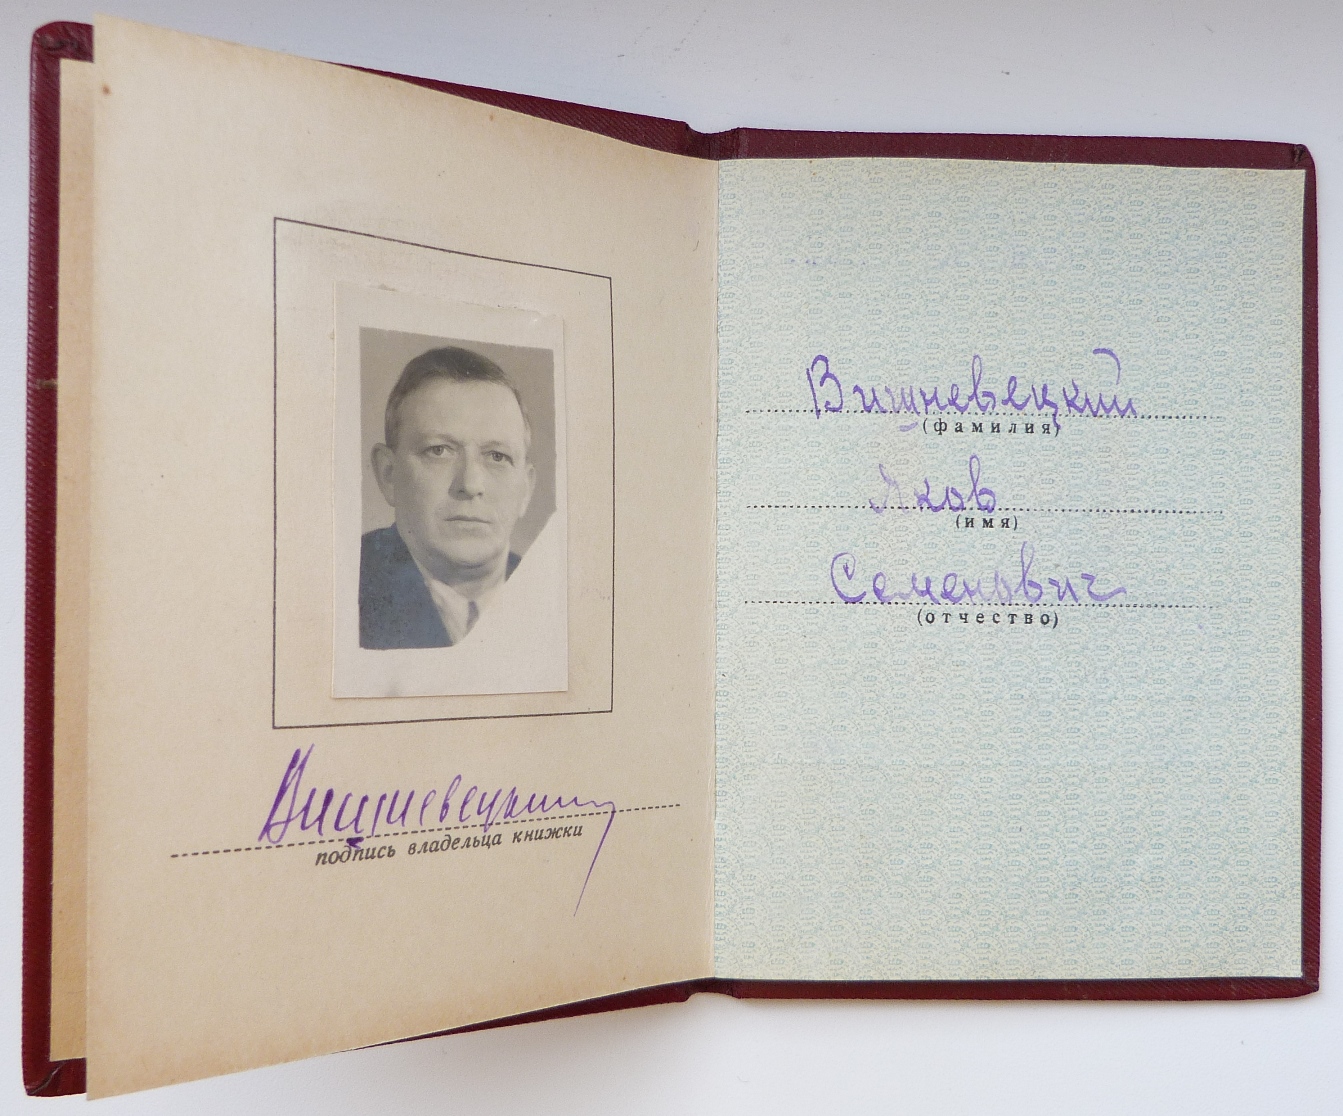 Вишневецкий
подпись владельца книжки
Вишневецкий
(фамилия)
Яков
(имя)
Семенович
(отчество)